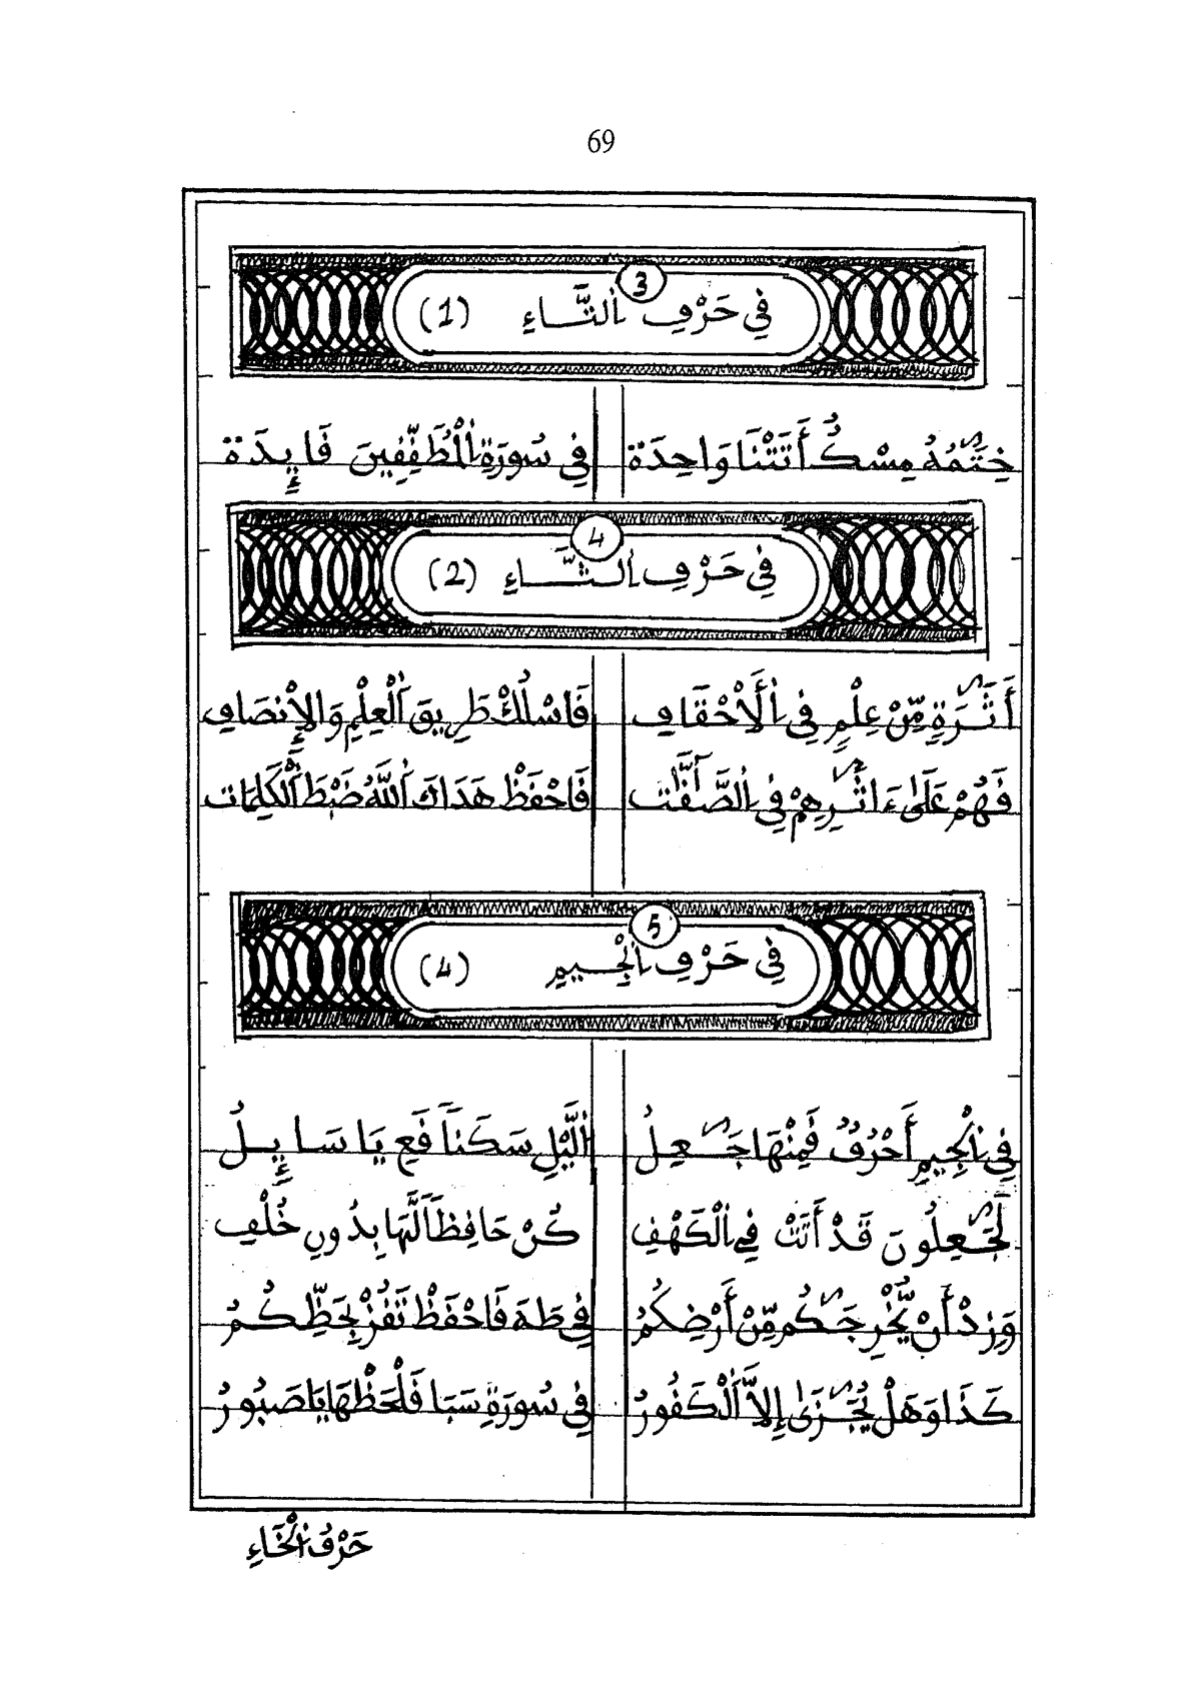 69
3
فِي حَرْفِ اِ۬لتَّــاءِ (1)
خِتَٰمُهُۥ مِسْكٌ أَتَتْنَا وَاحِدَة فِي سُورَةِ اِ۬لْمُطَفِّفِينَ فَائِدَة
4
فِي حَرْفِ اِ۬لثَّــاءِ (2)
أَثَٰرَةٍ مِّنْ عِلْمٍ فِي اِ۬لَأحْقَافِ فَاسْلُكْ طَرِيقَ اَ۬لْعِلْمِ وَالِإنْصَافِ
فَهُمْ عَلَىٰ ءَاثَٰرِهِمْ فِي اِ۬لصَّٰٓفَّٰت فَاحْفَظْ هَدَاكَ اَ۬للَّهُ ضَبْطَ اَ۬لْكَلِمَات
5
فِي حَرْفِ اِ۬لْجِــيمِ (4)
فِي اِ۬لْجِيمِ أَحْرُفٌ فَمِنْهَا جَٰعِلُ اُ۬لَّيْلِ سَكَناً فَعِ يَا سَائِــلُ
لَجَٰعِلُونَ قَدْ أَتَتْ فِي اِ۬لْكَهْفِ كُنْ حَافِظاً لَّهَا بِدُونِ خُلْفِ
وَزِدْ أَنْ يُّخْرِجَٰكُم مِّنْ أَرْضِكُمْ فِي طَهَ فَاحْفَظْ تَفُزْ بِحَظِّكُمْ
كَذَا وَهَلْ يُجَٰزَىٰ إِلاَّ اَ۬لْكَفُورُ فِي سُورَةِ سَبَا فَلْحَظْهَا يَا صَبُورُ
حَرْفُ اُ۬لْخَاءِ